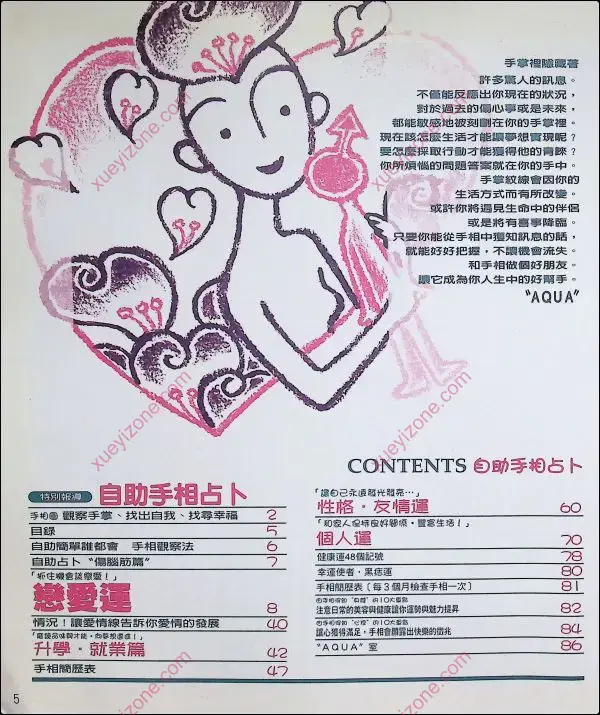 手掌裡隱藏著
許多驚人的訊息。
不僅能反應出你現在的狀況，
對於過去的傷心事或是未來，
都能敏感地被刻劃在你的手掌裡。
現在該怎麼生活才能讓夢想實現呢？
要怎麼採取行動才能獲得他的青睞？
你所煩惱的問題答案就在你的手中。
手掌紋線會因你的
生活方式而有所改變。
或許你將遇見生命中的伴侶
或是將有喜事降臨。
只要你能從手相中獲知訊息的話，
就能好好把握，不讓機會流失。
和手相做個好朋友。
讓它成為你人生中的好幫手。
“AQUA”
CONTENTS 自助手相占卜
特別報導 自助手相占卜
手相圖 觀察手掌、找出自我、找尋幸福 2
目錄 5
自助簡單誰都會 手相觀察法 6
自助占卜“傷腦筋篇” 7
「抓住機會談戀愛！」
戀愛運 8
情況！讓愛情線告訴你愛情的發展 40
升學·就業篇 42
手相簡歷表 47
「讓自己永遠發光發亮…」
性格·友情運 60
「和家人保持良好關係，豐富生活！」
個人運 70
健康運48個記號 78
幸運使者·黑痣運 80
手相簡歷表〔每3個月檢查手相一次〕 81
注意日常的美容與健康讓你運勢與魅力提昇 82
讓心獲得滿足，手相會顯露出快樂的徵兆 84
“AQUA”室 86
5
xueyizone.com
xueyizone.com
xueyizone.com
xueyizone.com
xueyizone.com
xueyizone.com
xueyizone.com